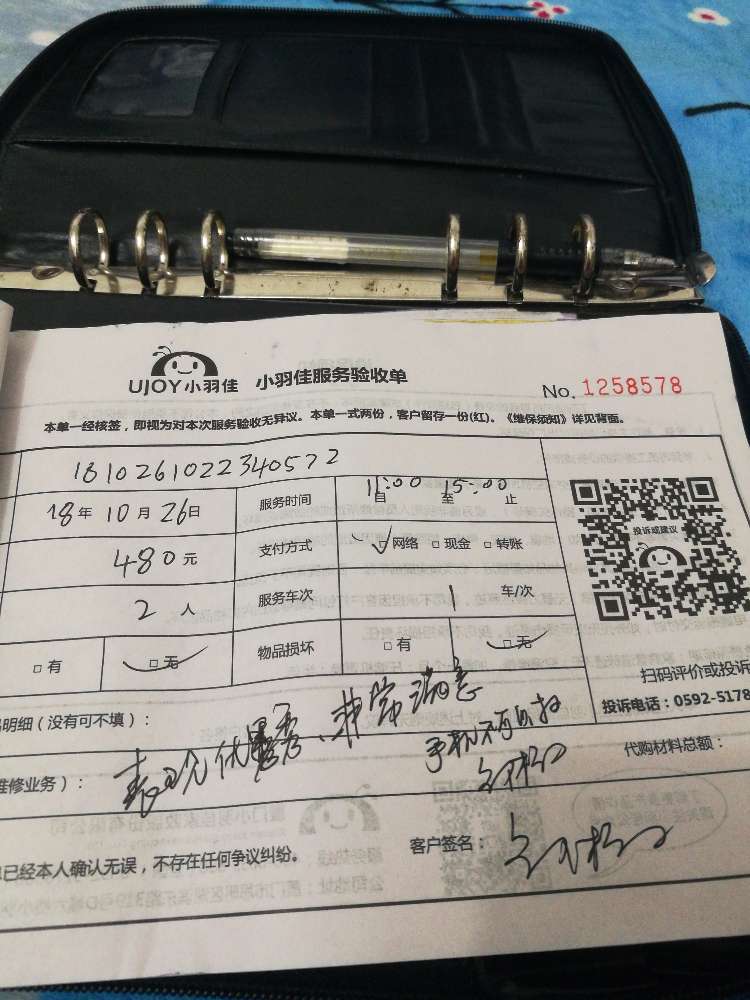 UJOY小羽佳 小羽佳服务验收单
No. 1258578
本单一经核签，即视为对本次服务验收无异议。本单一式两份，客户留存一份(红)。《维保须知》详见背面。
1810261022340572
18年 10月 26日 服务时间 11:00 15:00
自 至 止
480元 支付方式 网络 现金 转账
2人 服务车次 1 车/次
有 无 物品损坏 有 无
投诉或建议
扫码评价或投诉
投诉电话：0592-5178
明细（没有可不填）：
代购材料总额：
维修业务）：
表现优秀、非常满意
已经本人确认无误，不存在任何争议纠纷。
客户签名：